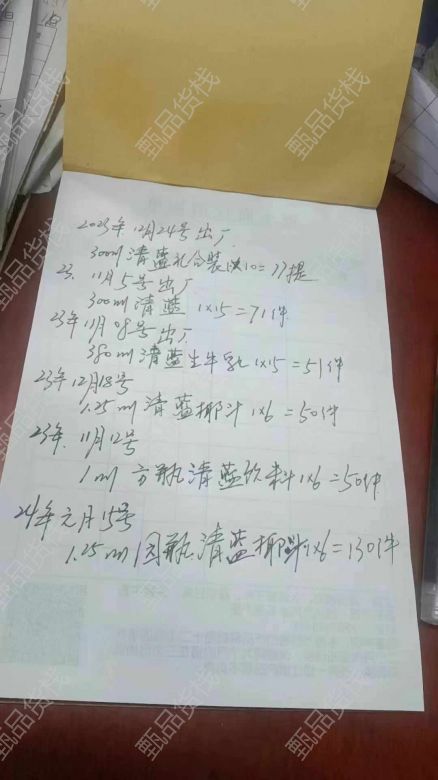 2023年12月24号出厂
300ml清蓝礼合装1X10=77提
23.11月5号出厂
300ml清蓝1X15=71件
23年11月08号出厂
380ml清蓝生牛乳1X15=51件
23年12月18号
1.25ml清蓝椰汁1X6=50件
23年.11月12号
1ml方瓶清蓝饮料1X6=50件
24年元月15号
1.25ml园瓶清蓝椰汁1X6=130件
甄品货栈